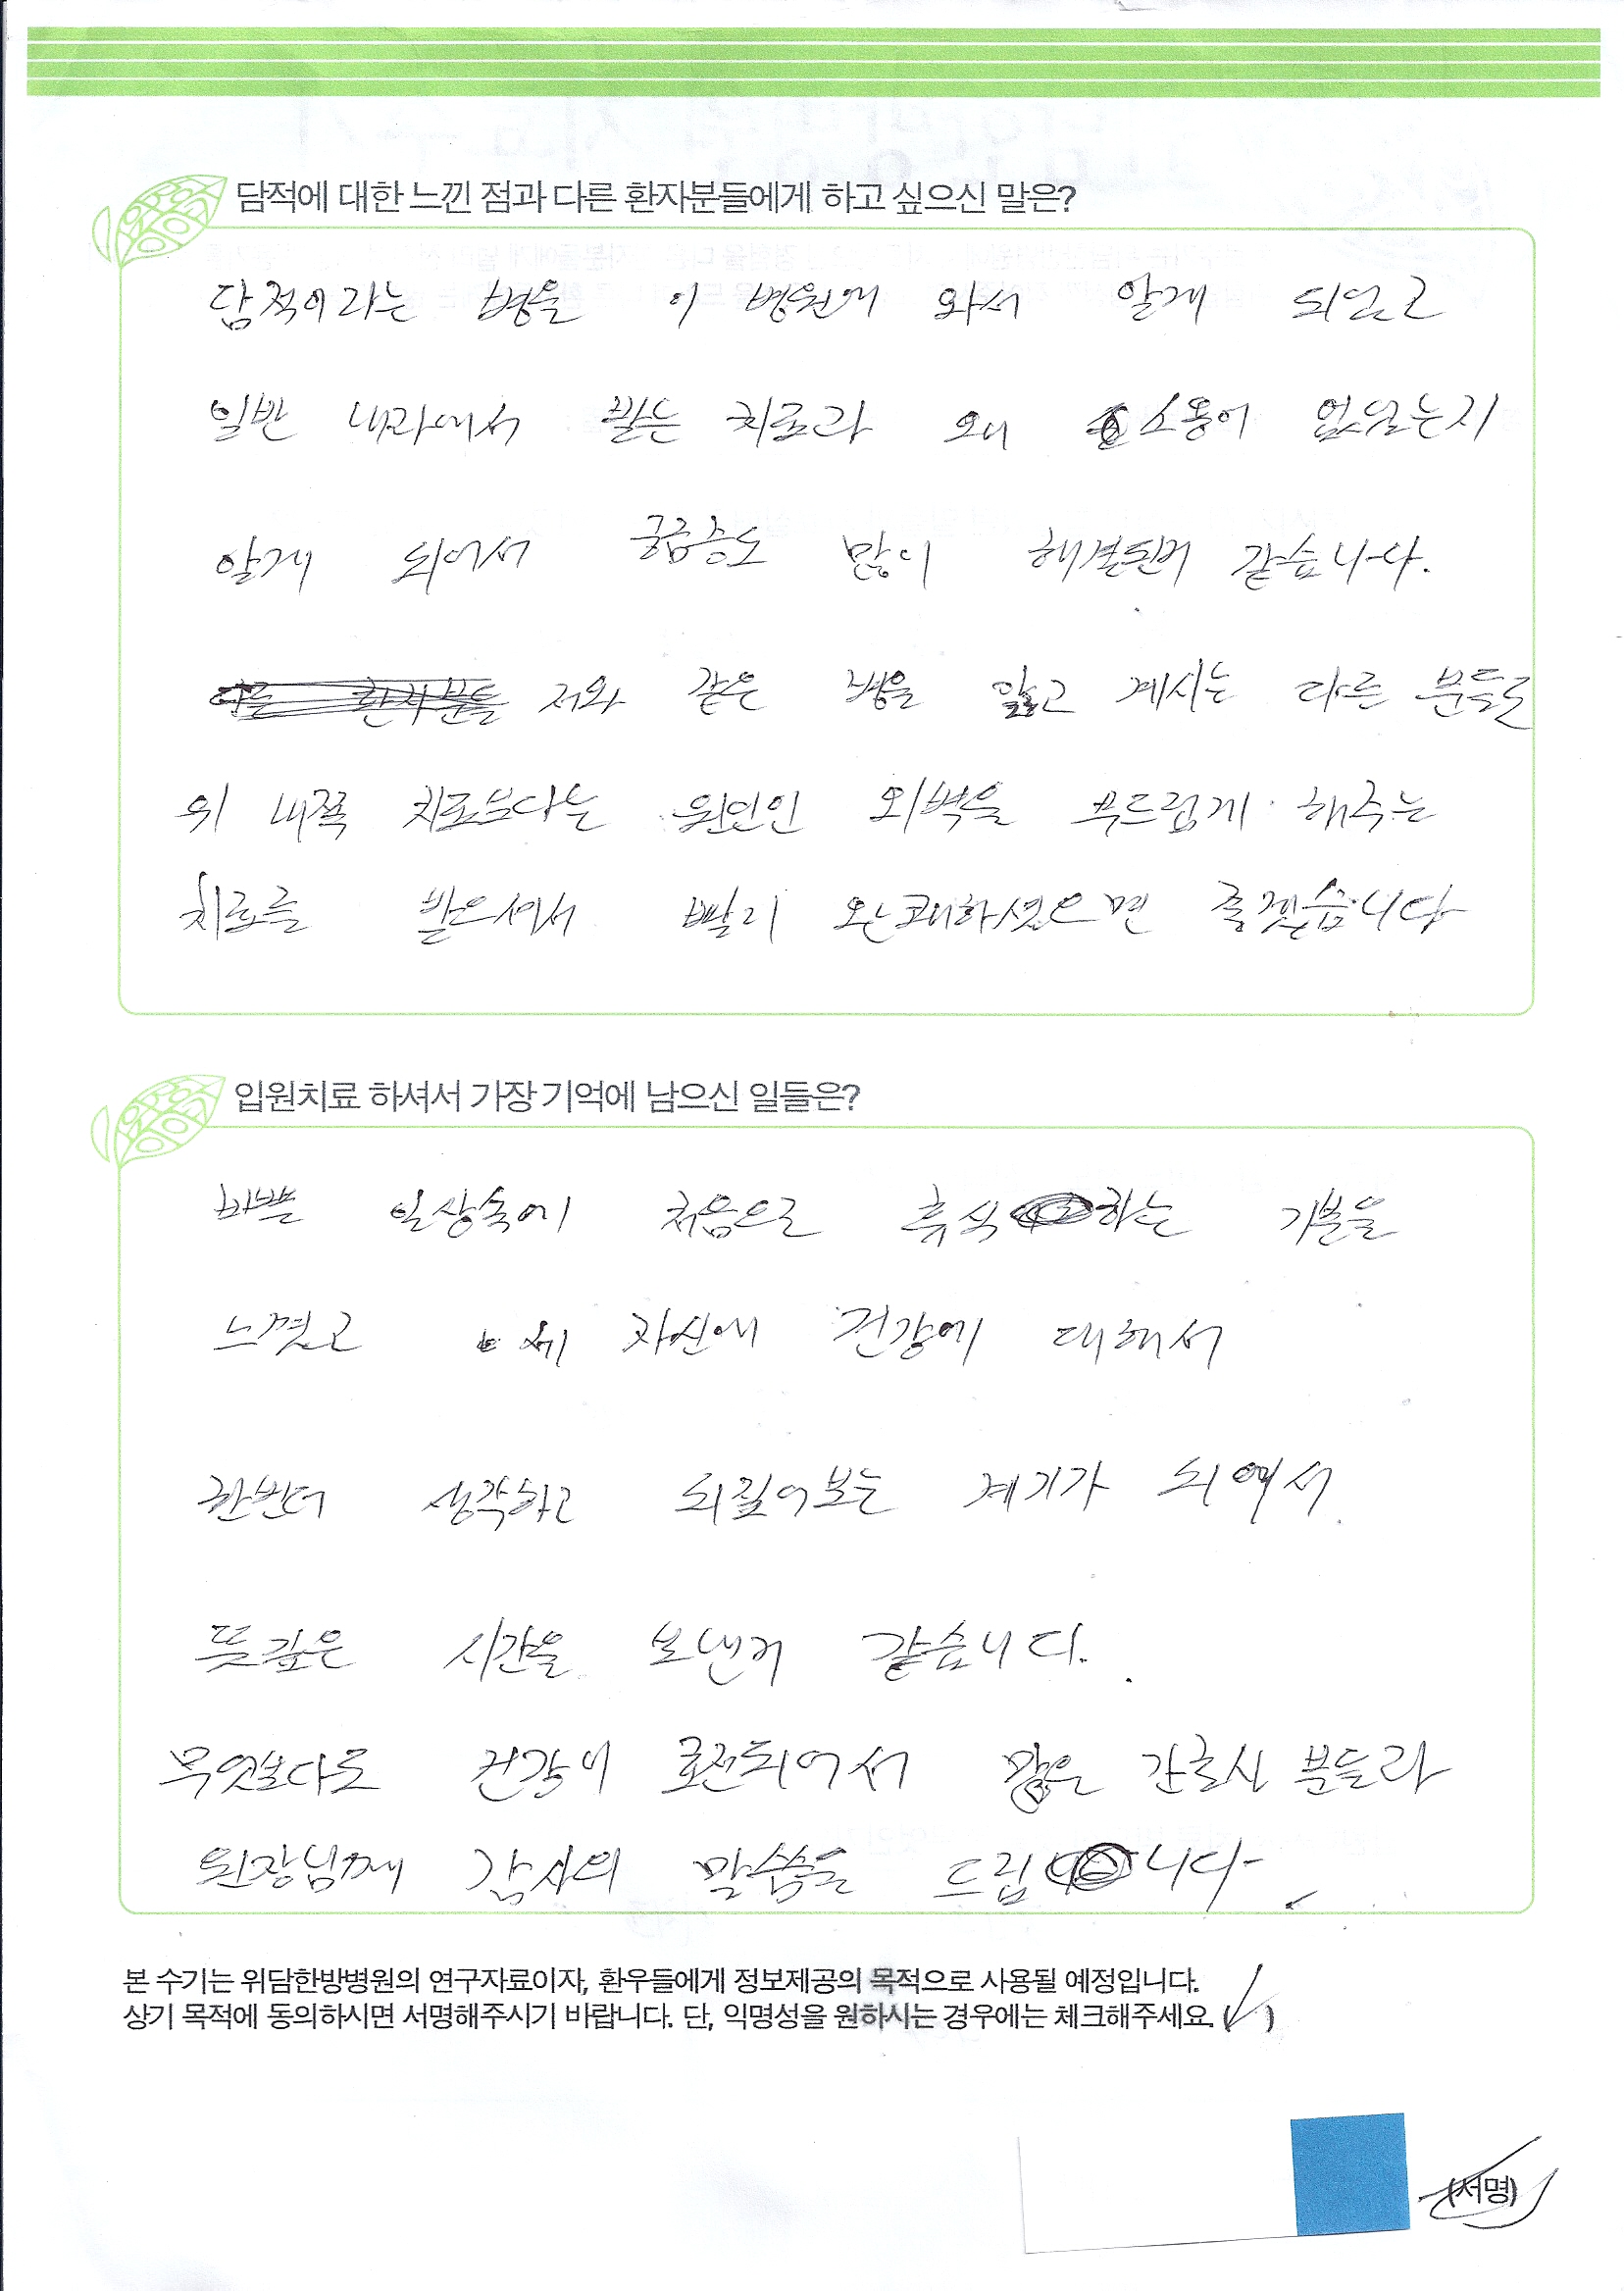 담적에 대한 느낀 점과 다른 환자분들에게 하고 싶으신 말은?
담적이라는 병을 이 병원에 와서 알게 되었고
일반 내과에서 받는 치료과 왜 소용이 없었는지
알게 되어서 궁금증도 많이 해결된거 같습니다.
다른 환자분들 저와 같은 병을 앓고 계시는 다른 분들도
위 내쪽 치료보다는 원인인 외벽을 부드럽게 해주는
치료를 받으셔서 빨리 완쾌하셨으면 좋겠습니다
입원치료 하셔서 가장 기억에 남으신 일들은?
바쁜 일상속에 처음으로 휴식하는 기분을
느꼈고 제 자신에 건강에 대해서
한번더 생각하고 되짚어보는 계기가 되어서
뜻깊은 시간을 보낸거 같습니다.
무엇보다도 건강이 호전되어서 많은 간호사 분들과
원장님께 감사의 말씀을 드립니다.
본 수기는 위담한방병원의 연구자료이자, 환우들에게 정보제공의 목적으로 사용될 예정입니다.
상기 목적에 동의하시면 서명해주시기 바랍니다. 단, 익명성을 원하시는 경우에는 체크해주세요. (✓)
(서명)